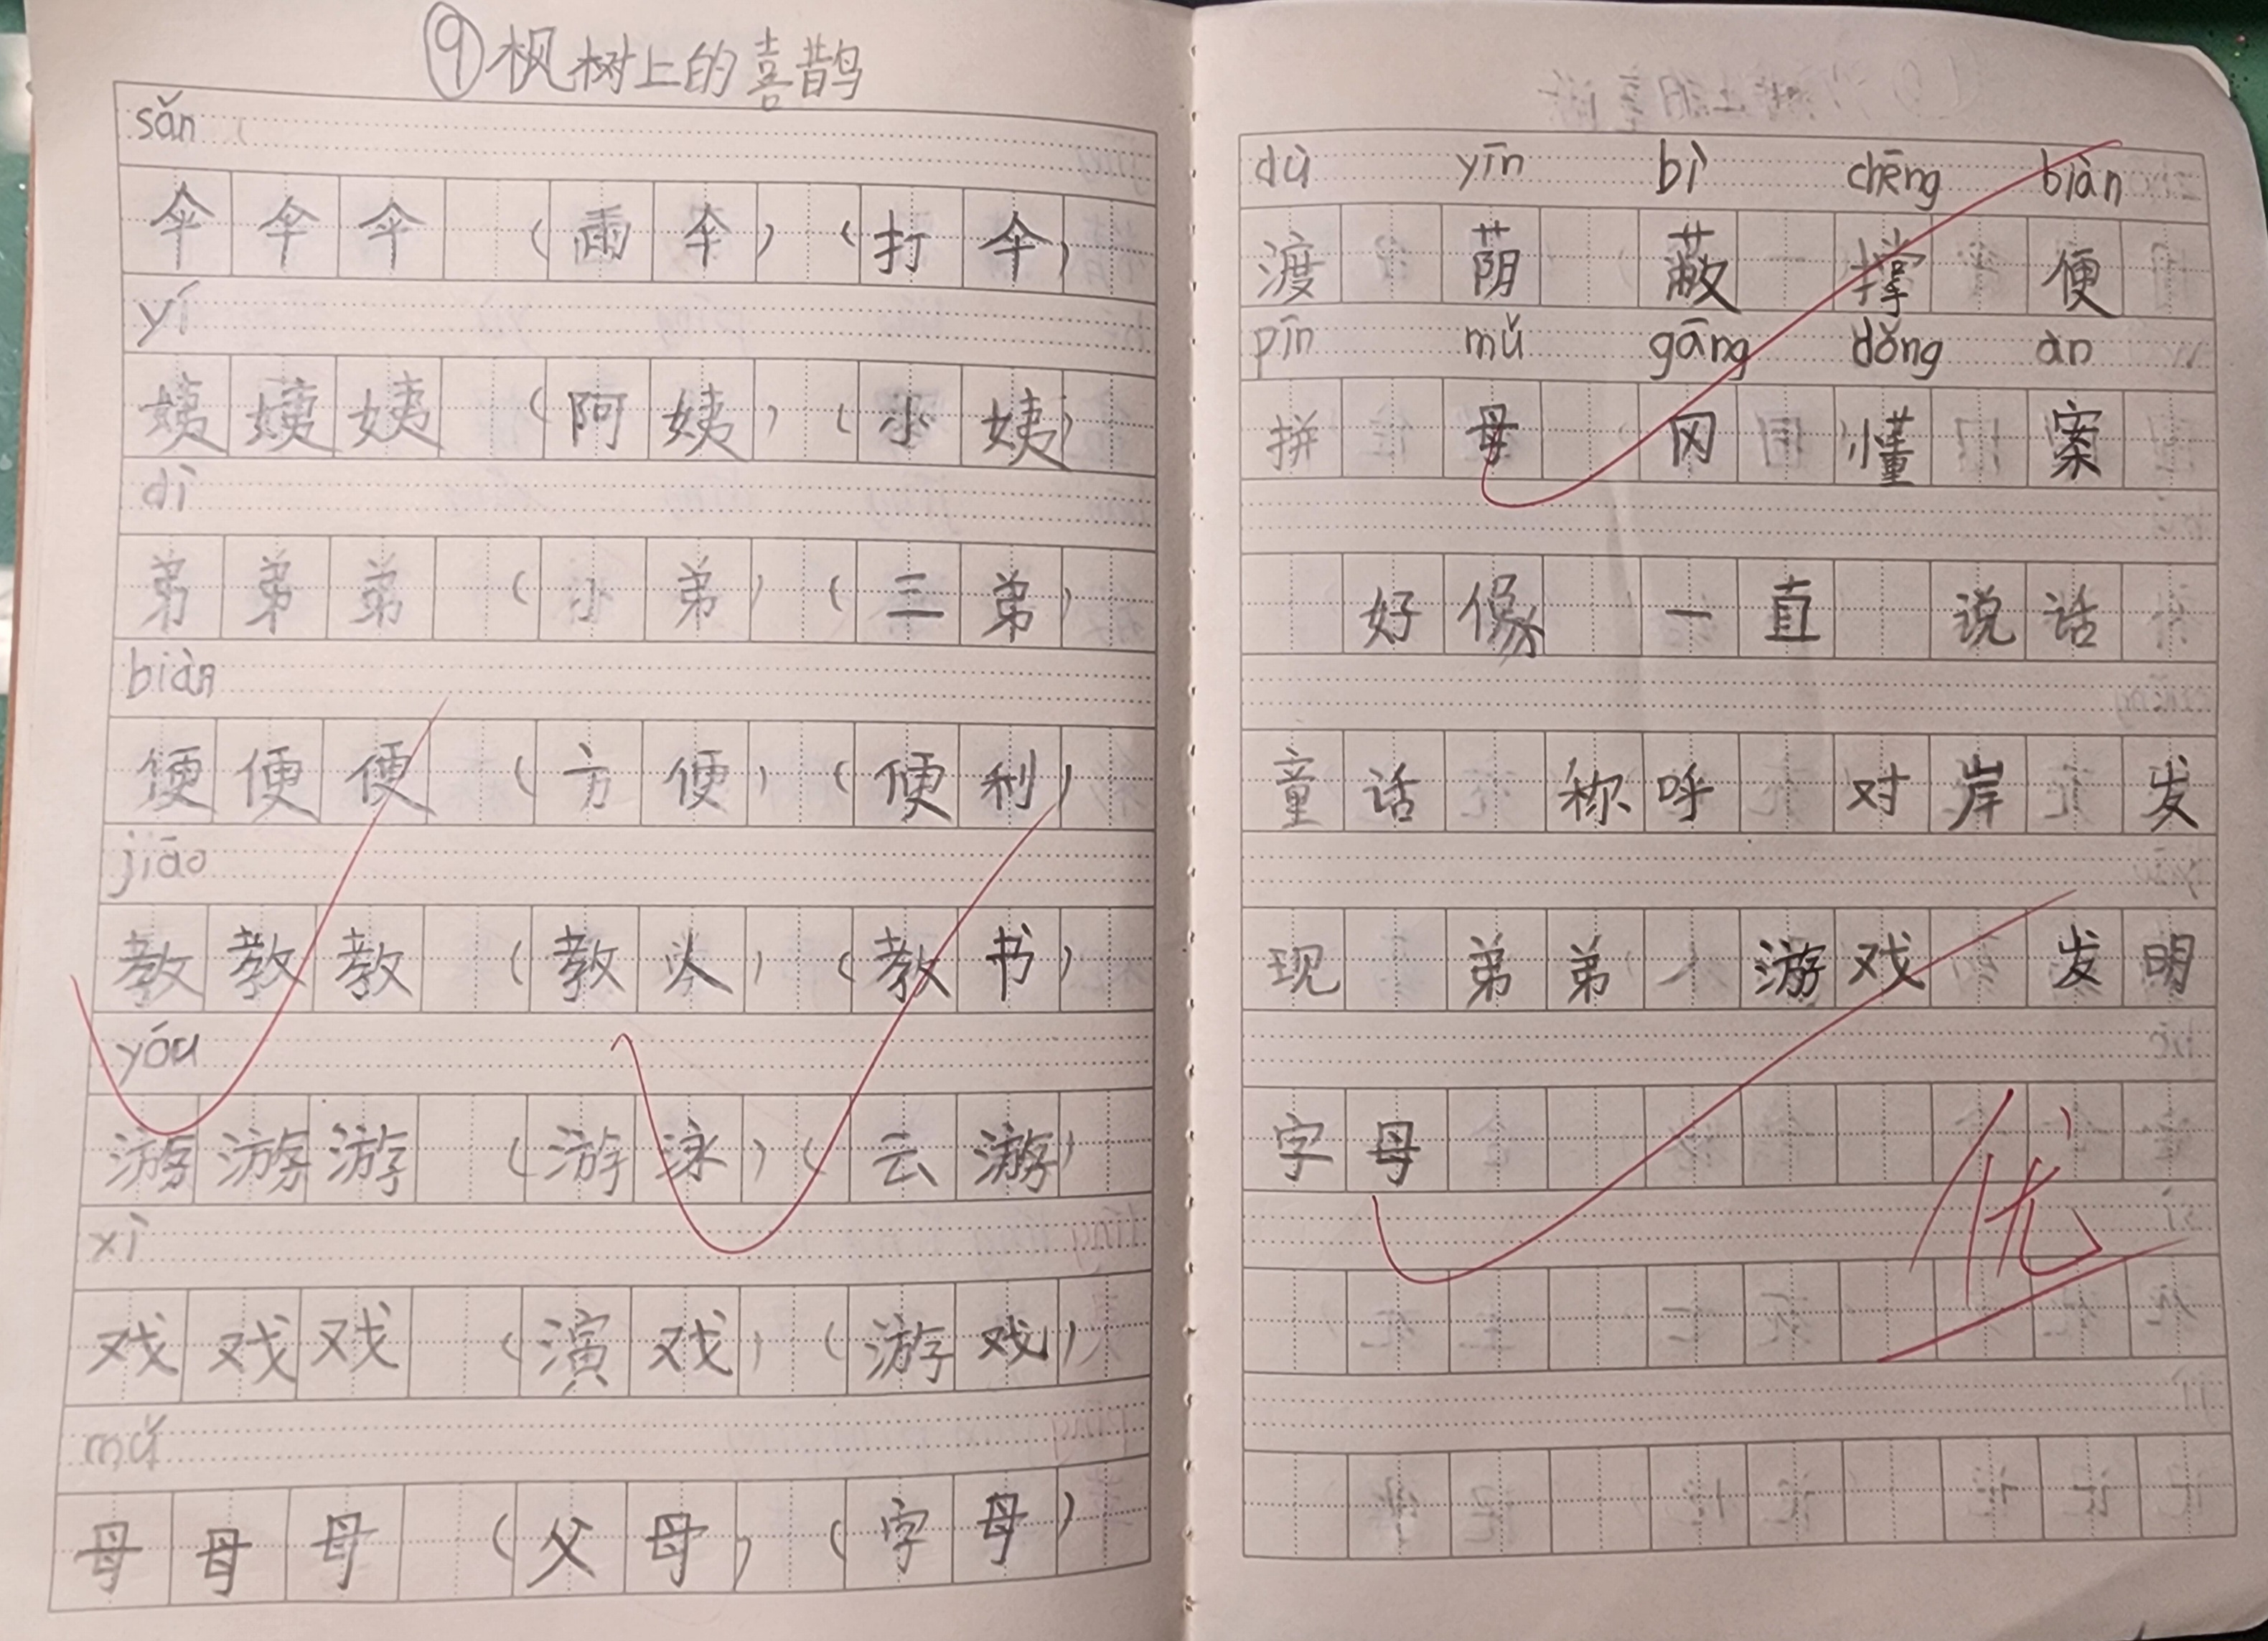 ⑨枫树上的喜鹊
sǎn
伞伞伞（雨伞）（打伞）
yí
姨姨姨（阿姨）（小姨）
dì
弟弟弟（小弟）（三弟）
biàn
便便便（方便）（便利）
jiāo
教教教（教人）（教书）
yóu
游游游（游泳）（云游）
xì
戏戏戏（演戏）（游戏）
mǔ
母母母（父母）（字母）
dù yīn bì chēng biàn
渡 荫 蔽 撑 便
pīn mǔ gāng dǒng àn
拼 母 冈 懂 案
好像 一直 说话
童话 称呼 对岸 发
现 弟弟 游戏 发明
字母
优